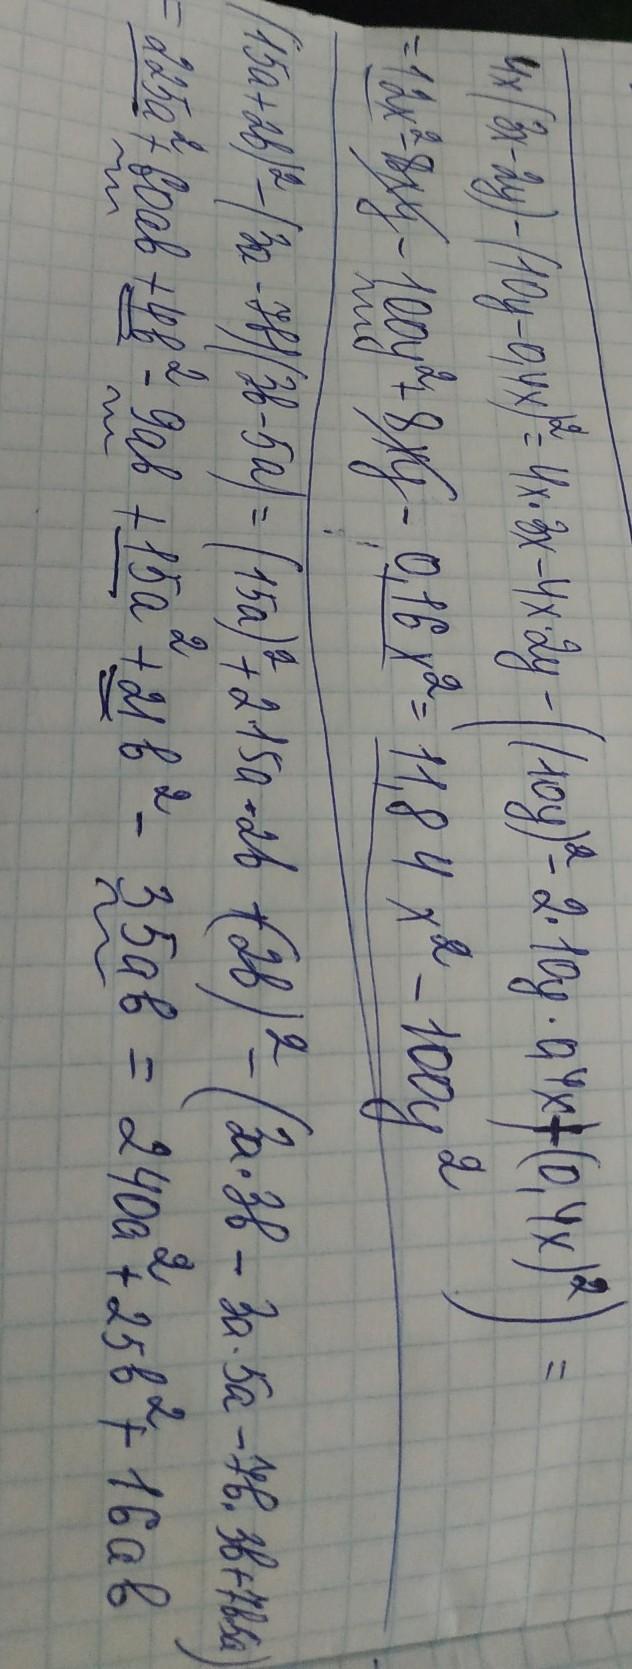 4x(3x-2y)-(10y-0,4x)²=4x·3x-4x·2y-((10y)²-2·10y·0,4x+(0,4x)²)=
=12x²-8xy-100y²+8xy-0,16x²=11,84x²-100y²
(15a+2b)²-(3a-7b)(3b-5a)=(15a)²+2·15a·2b+(2b)²-(3a·3b-3a·5a-7b·3b+7b·5a)
=225a²+60ab+4b²-9ab+15a²+21b²-35ab=240a²+25b²+16ab